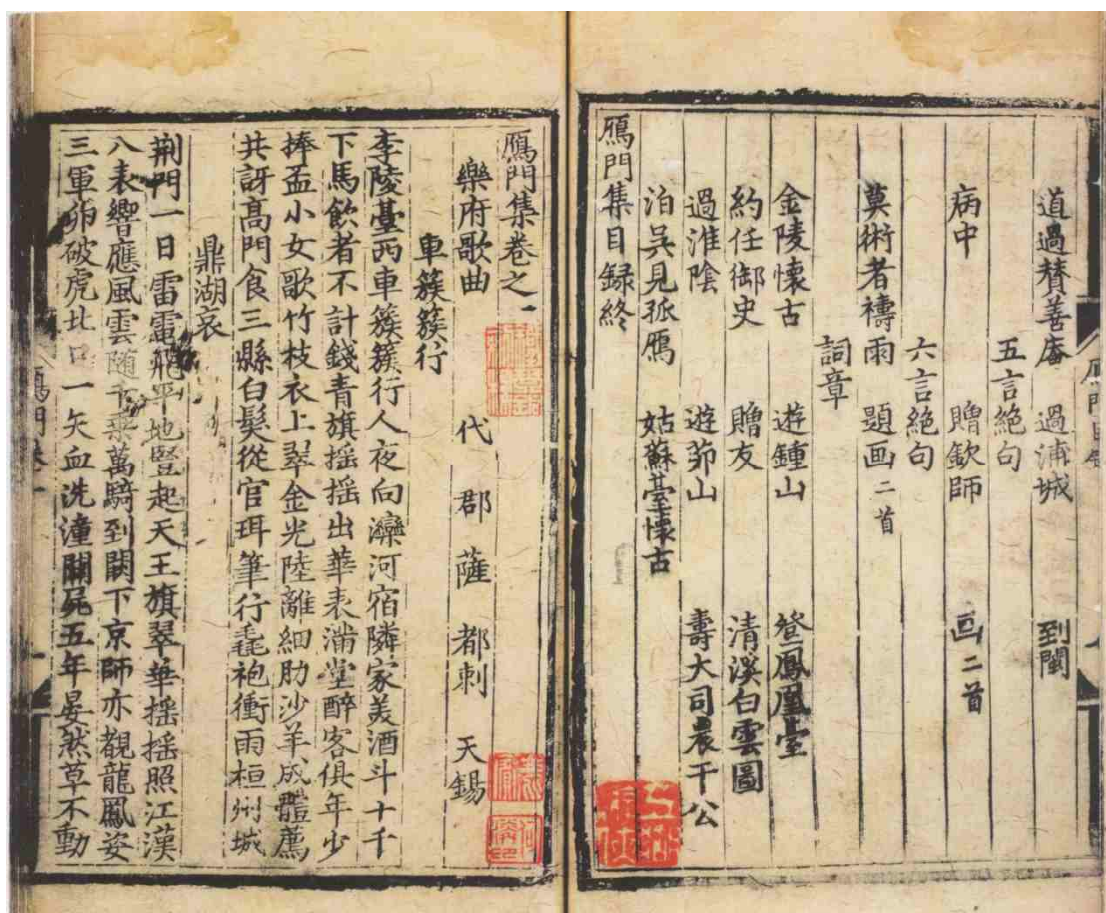 道過賛善庵 過浦城 到閩
五言絶句
病中 贈欽師 画二首
六言絶句
莫術者禱雨 題画二首
詞章
金陵懷古 遊鍾山 登鳳凰臺
約任御史 贈友 清溪白雲圖
過淮陰 遊茆山 壽大司農干公
泊吳見孤鴈 姑蘇臺懷古
鴈門集目録終
鴈門集卷之一
樂府歌曲 代郡薩都剌天錫
車簇簇行
李陵臺西車簇簇行人夜向灤河宿隣家美酒斗十千
下馬飲者不計錢青旗摇摇出華表滿堂醉客俱年少
捧盃小女歌竹枝衣上翠金光陸離細肋沙羊成體薦
共訝高門食三縣白髮從官珥筆行毳袍衝雨桓州城
鼎湖哀
荆門一日雷電飛平地豎起天王旗翠華摇摇照江漢
八表響應風雲随千乘萬騎到闕下京師亦覩龍鳳姿
三軍夘破虎北口一矢血洗潼關屍五年晏然草不動